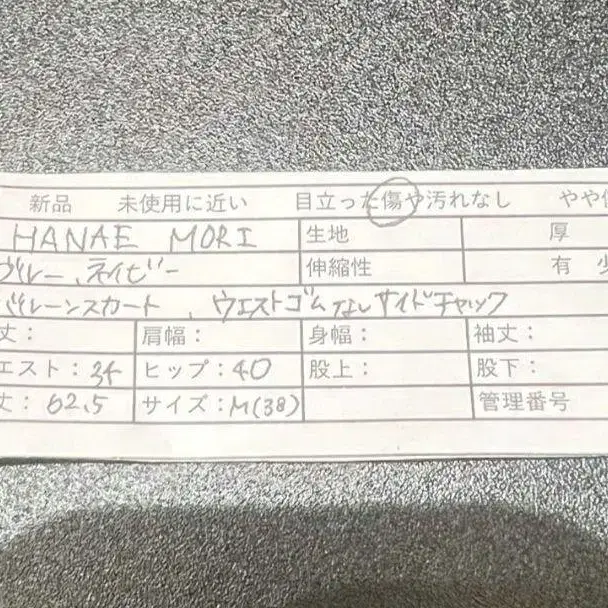 新品 未使用に近い 目立った傷や汚れなし やや傷
HANAE MORI 生地 厚
グレー、ネイビー 伸縮性 有 少
プレーンスカート、ウエストゴムなしサイドチャック
丈: 肩幅: 身幅: 袖丈:
エスト:34 ヒップ:40 股上: 股下:
丈:62.5 サイズ:M(38) 管理番号